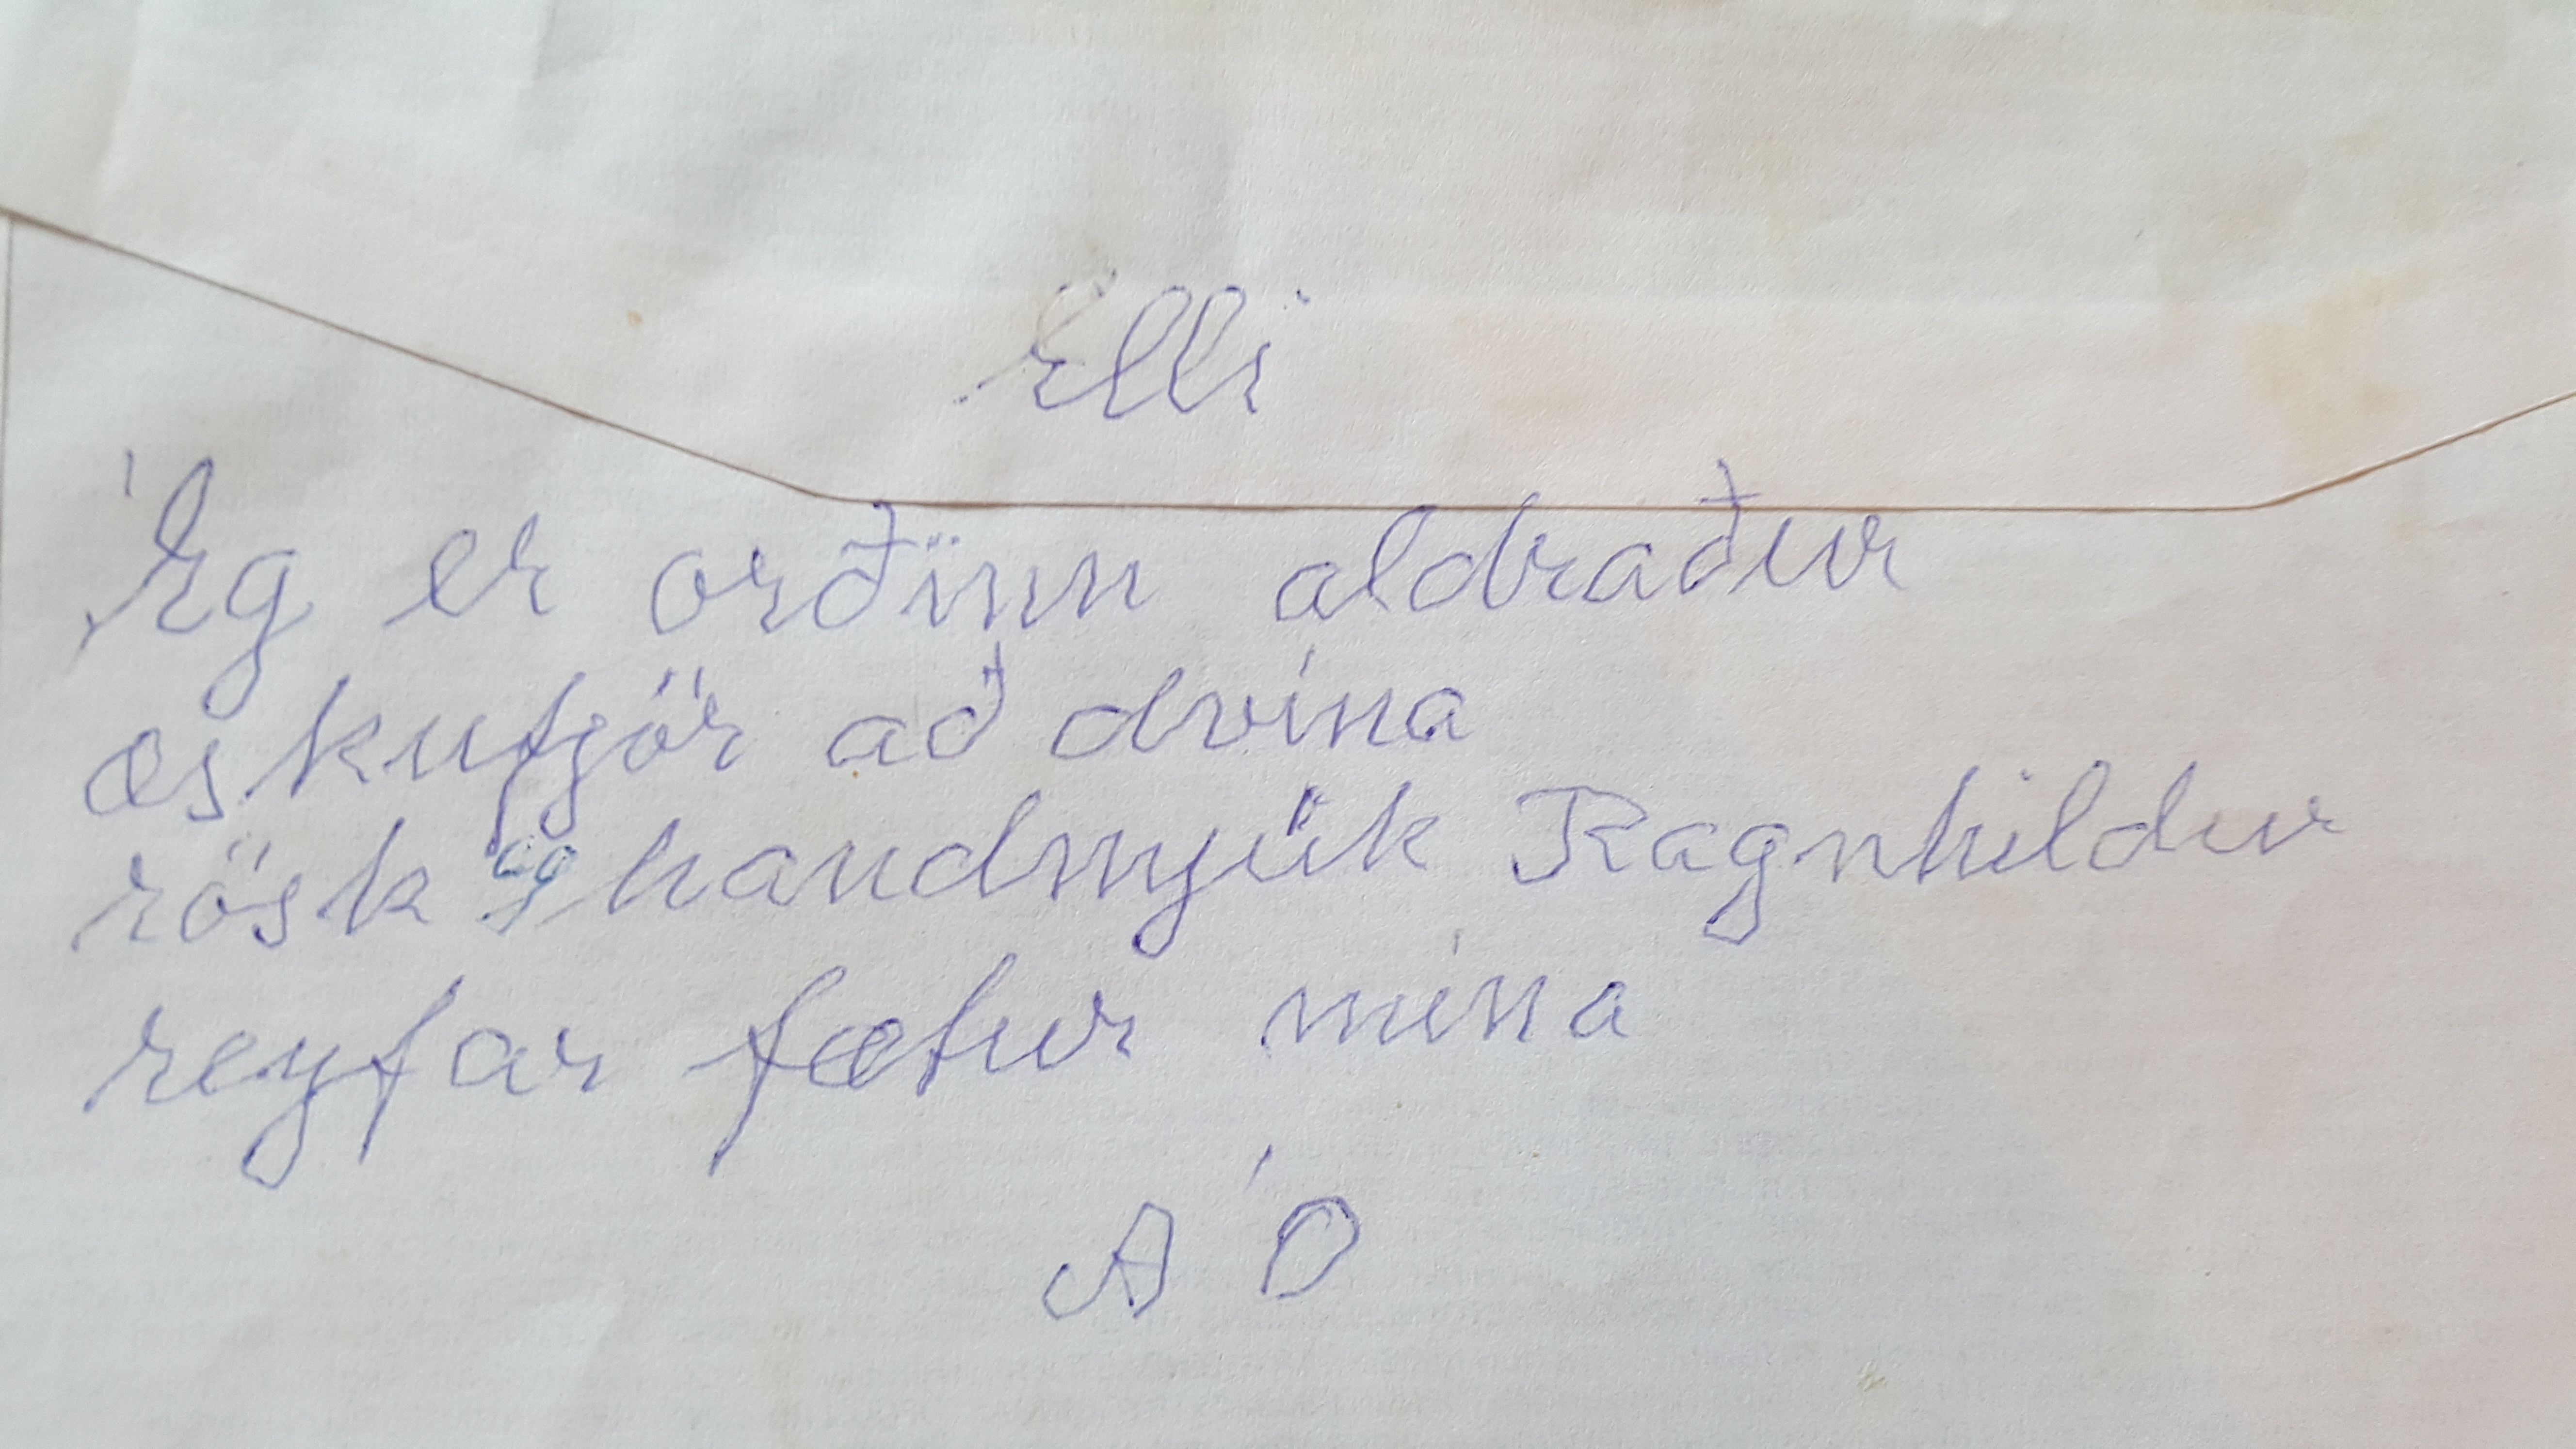 Elli
Ég er orðinn aldraður
æskufjör að dvína
rösk og handmjúk Ragnhildur
reyfar fætur mína
A Ó